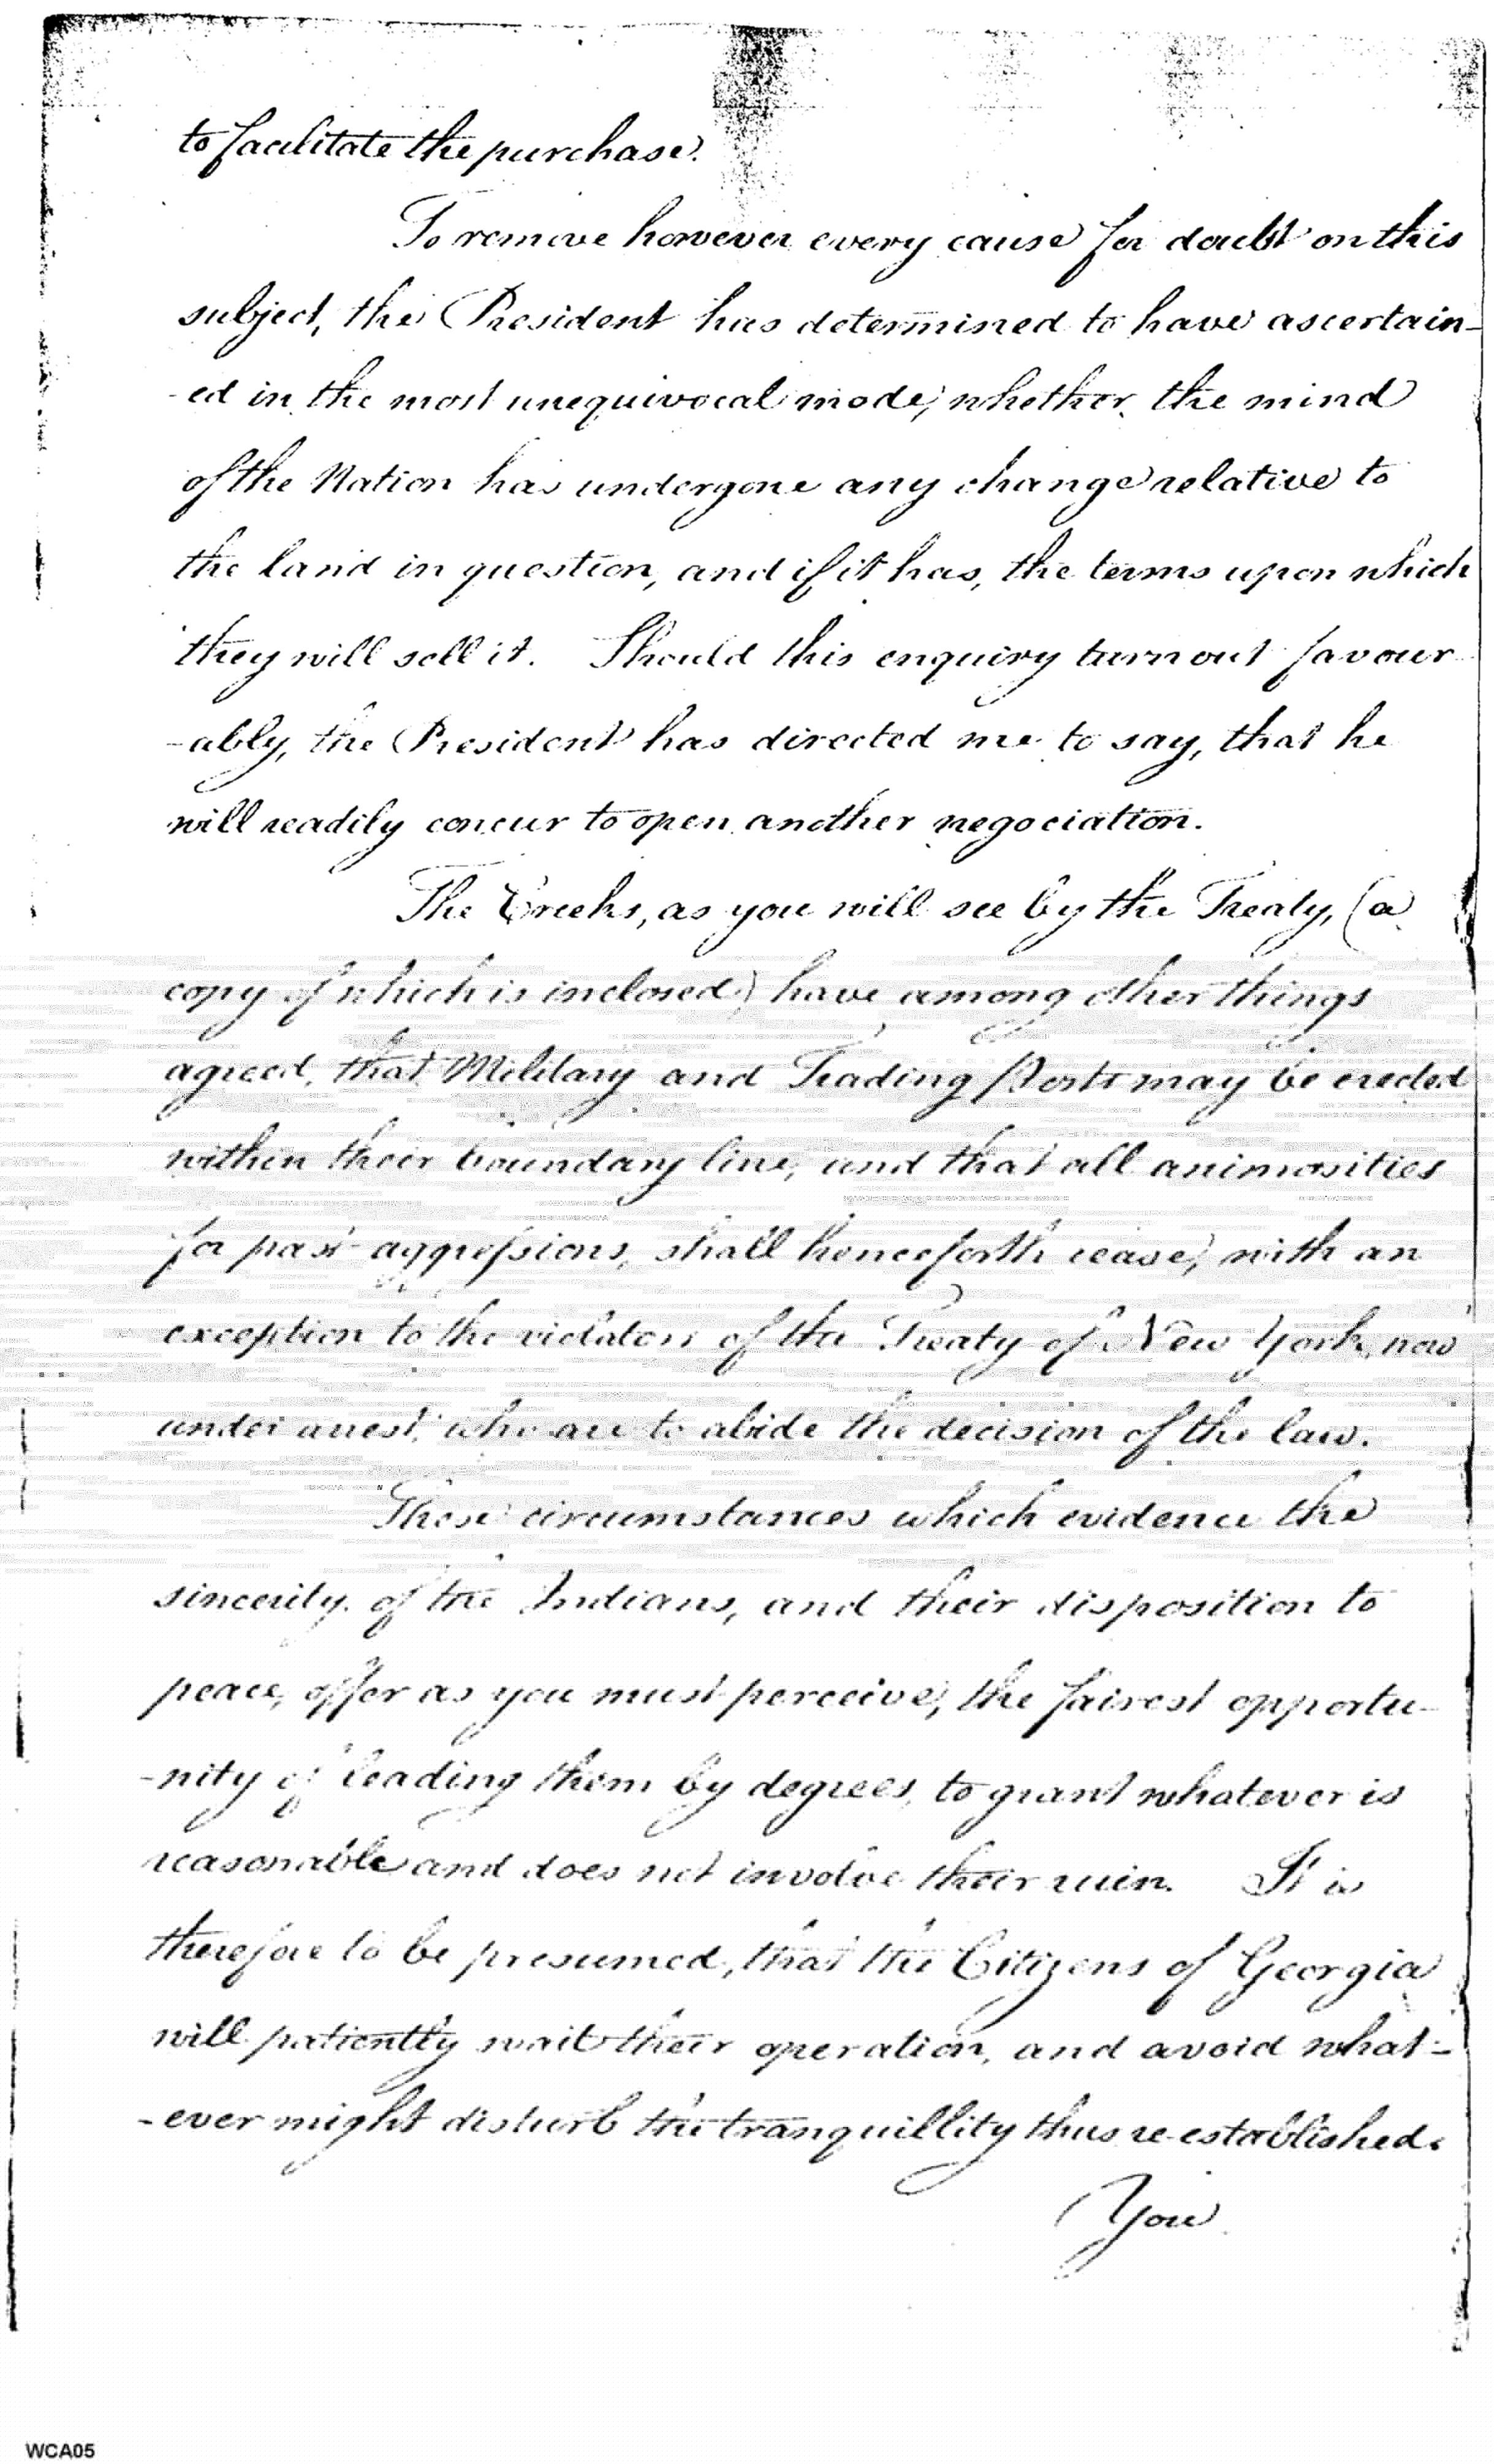 to facilitate the purchase.
To remove however every cause for doubt on this
subject, the President has determined to have ascertain-
-ed in the most unequivocal mode, whether the mind
of the Nation has undergone any change relative to
the land in question, and if it has, the terms upon which
they will sell it. Should this enquiry turn out favour-
-ably, the President has directed me to say, that he
will readily concur to open another negociation.
The Creeks, as you will see by the Treaty, (a
copy of which is inclosed) have among other things
agreed, that Military and Trading Posts may be erected
within their boundary line, and that all animosities
for past aggressions, shall henceforth cease, with an
exception to the violators of the Treaty of New York, now
under arrest, who are to abide the decision of the law.
These circumstances which evidence the
sincerity of the Indians, and their disposition to
peace, offer as you must perceive, the fairest opportu-
-nity of leading them by degrees, to grant whatever is
reasonable and does not involve their ruin. It is
therefore to be presumed, that the Citizens of Georgia
will patiently wait their operation, and avoid what-
-ever might disturb the tranquillity thus re-established.
You
WCA05